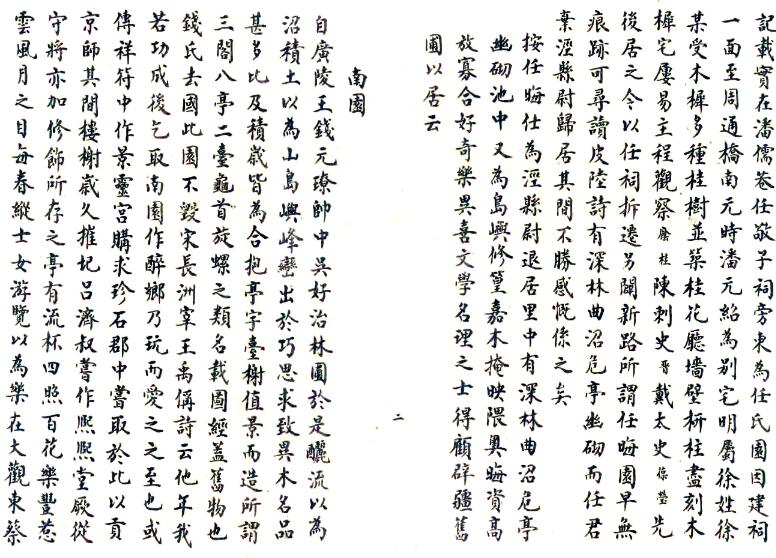 記載實在潘儒巷任敬子祠旁東為任氏園因建祠
一面至周通橋南元時潘元紹為別宅明屬徐姓徐
某受木樨多種桂樹並築桂花廳墻壁枡柱盡刻木
樨宅屢易主程觀察陳刺史戴太史先
後居之令以任祠拆遷另闢新路所謂任晦園早無
痕跡可尋讀皮陸詩有深林曲沼危亭幽砌而任君
棄涇縣尉歸居其間不勝感慨係之矣
按任晦仕為涇縣尉退居里中有深林曲沼危亭
幽砌池中又為島嶼修篁嘉木掩映隈奧晦資高
放寡合好奇樂異喜文學名理之士得顧辟疆舊
圃以居云
二
南園
自廣陵王錢元璙帥中吳好治林圃於是釃流以為
沼積土以為山島嶼峰巒出於巧思求致異木名品
甚多比及積歲皆為合抱亭宇臺榭值景而造所謂
三閣八亭二臺龜首旋螺之類名載圖經蓋舊物也
錢氏去國此園不毀宋長洲宰王禹偁詩云他年我
若功成後乞取南園作醉鄉乃玩而愛之之至也或
傳祥符中作景靈宮購求珍石郡中嘗取於此以貢
京師其間樓榭歲久摧圮呂濟叔嘗作熙熙堂厥從
守將亦加修飾所存之亭有流杯四照百花樂豐惹
雲風月之目每春縱士女游覽以為樂在大觀東蔡